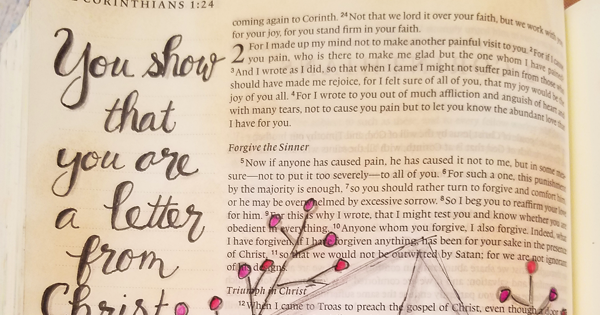 CORINTHIANS 1:24
You show
that
you are
a letter
from
Christ
coming again to Corinth. 24Not that we lord it over your faith, but we work with you
for your joy, for you stand firm in your faith.
2 For I made up my mind not to make another painful visit to you. 2For if I
you pain, who is there to make me glad but the one whom I have
3And I wrote as I did, so that when I came I might not suffer pain from those who
should have made me rejoice, for I felt sure of all of you, that my joy would be the
joy of you all. 4For I wrote to you out of much affliction and anguish of heart and
with many tears, not to cause you pain but to let you know the abundant love that
I have for you.
Forgive the Sinner
5Now if anyone has caused pain, he has caused it not to me, but in some
sure—not to put it too severely—to all of you. 6For such a one, this punishment
by the majority is enough, 7so you should rather turn to forgive and comfort him,
or he may be overwhelmed by excessive sorrow. 8So I beg you to reaffirm your love
for him. 9For this is why I wrote, that I might test you and know whether you are
obedient in everything. 10Anyone whom you forgive, I also forgive. Indeed, what
I have forgiven, if I have forgiven anything, has been for your sake in the presence
of Christ, 11so that we would not be outwitted by Satan; for we are not ignorant
of his designs.
Triumph in Christ
12When I came to Troas to preach the gospel of Christ, even though a door